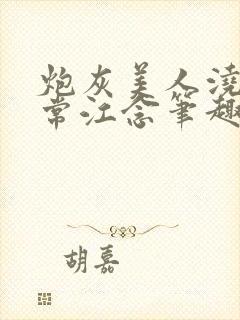 炮灰美人浇
常江念笔趣
胡嘉